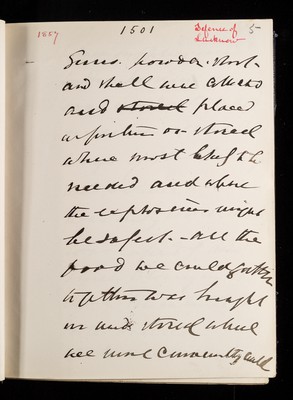 1857
1501
Defence of
Lucknow
5
Guns. powder. shot -
and shell were collected
and stored placed
in position or stored
where most likely to be
needed and where
the explosives might
be safest. - all the
food we could gather
together was brought
in and stored where
we most conveniently could